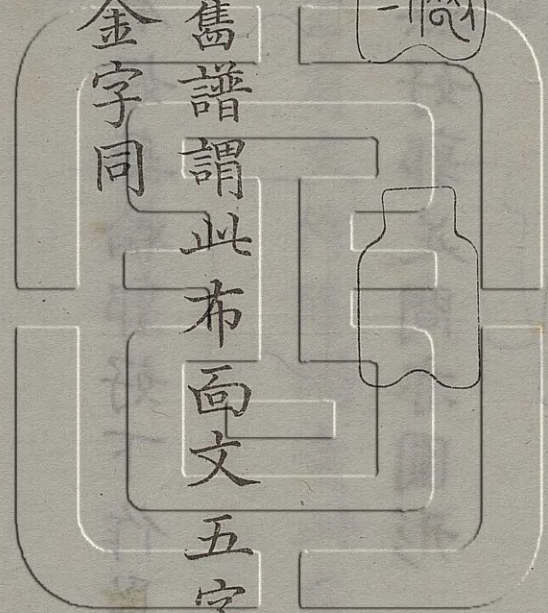 舊譜謂此布面文五字
金字同